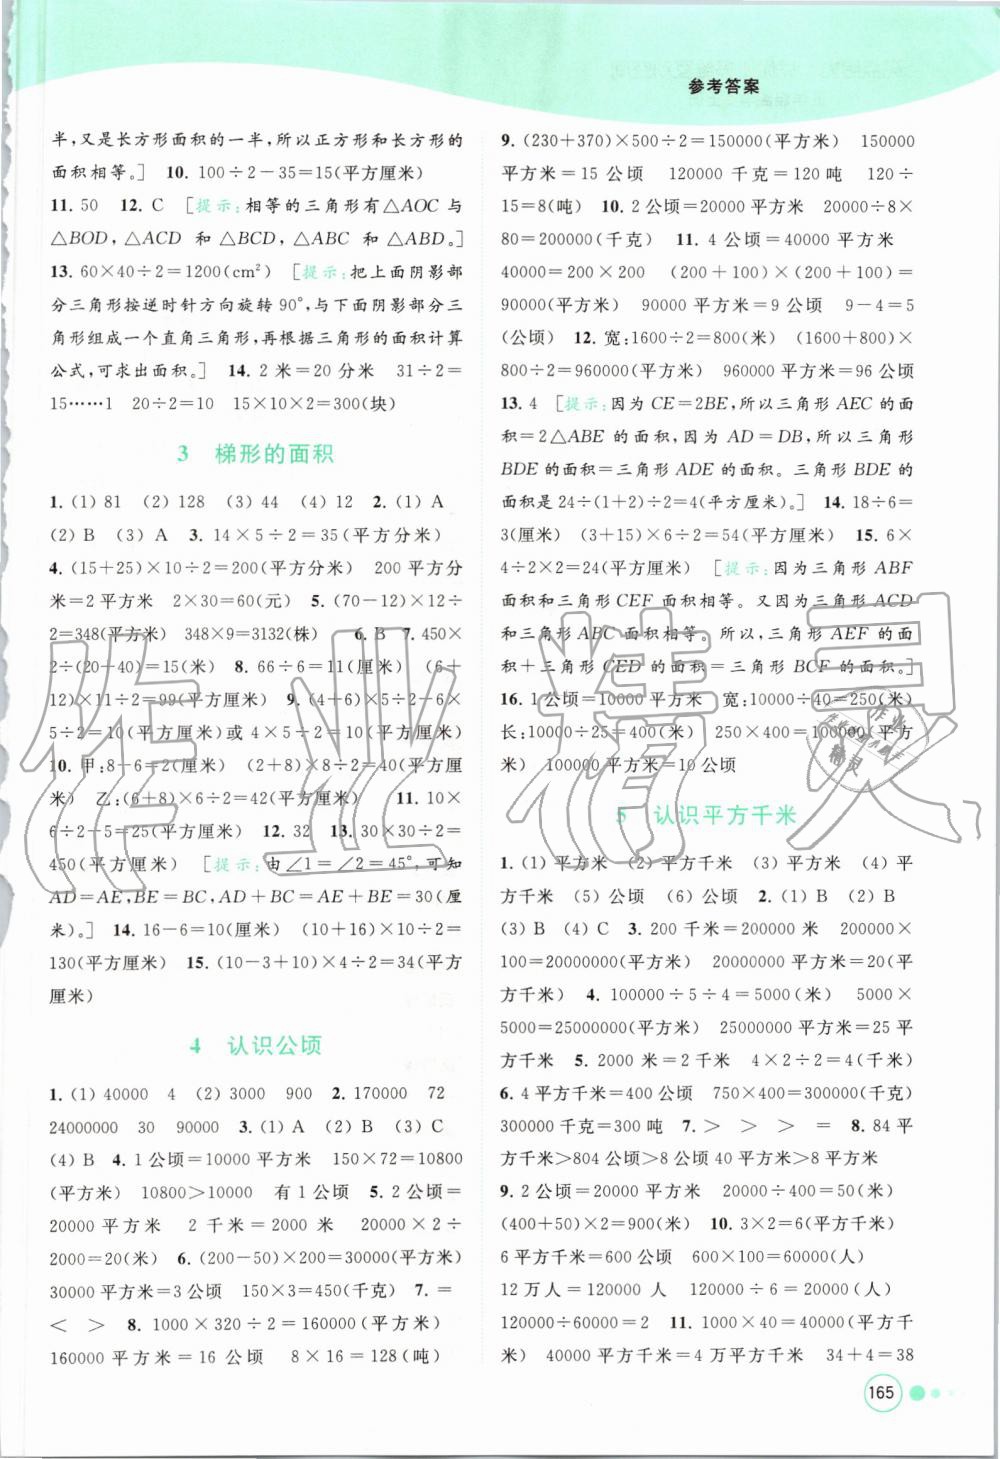 参考答案
半,又是长方形面积的一半,所以正方形和长方形的
面积相等。] 10. 100÷2-35=15(平方厘米)
11. 50 12. C [提示:相等的三角形有△AOC 与
△BOD,△ACD 和△BCD,△ABC 和△ABD。]
13. 60×40÷2=1200(cm²) [提示:把上面阴影部
分三角形按逆时针方向旋转 90°,与下面阴影部分三
角形组成一个直角三角形,再根据三角形的面积计算
公式,可求出面积。] 14. 2 米=20 分米 31÷2=
15……1 20÷2=10 15×10×2=300(块)
3 梯形的面积
1. (1) 81 (2) 128 (3) 44 (4) 12 2. (1) A
(2) B (3) A 3. 14×5÷2=35(平方分米)
4. (15+25)×10÷2=200(平方分米) 200 平方分
米=2 平方米 2×30=60(元) 5. (70-12)×12÷
2=348(平方米) 348×9=3132(株) 6. B 7. 450×
2÷(20+40)=15(米) 8. 66÷6=11(厘米) (6+
12)×11÷2=99(平方厘米) 9. (4+6)×5÷2-6×
5÷2=10(平方厘米)或 4×5÷2=10(平方厘米)
10. 甲:8-6=2(厘米) (2+8)×8÷2=40(平方厘
米) 乙:(6+8)×6÷2=42(平方厘米) 11. 10×
6÷2-5=25(平方厘米) 12. 32 13. 30×30÷2=
450(平方厘米) [提示:由∠1=∠2=45°,可知
AD=AE,BE=BC,AD+BC=AE+BE=30(厘
米)。] 14. 16-6=10(厘米) (10+16)×10÷2=
130(平方厘米) 15. (10-3+10)×4÷2=34(平方
厘米)
4 认识公顷
1. (1) 40000 4 (2) 3000 900 2. 170000 72
24000000 30 90000 3. (1) A (2) B (3) C
(4) B 4. 1 公顷=10000 平方米 150×72=10800
(平方米) 10800>10000 有 1 公顷 5. 2 公顷=
20000 平方米 2 千米=2000 米 20000×2÷
2000=20(米) 6. (200-50)×200=30000(平方米)
30000 平方米=3 公顷 150×3=450(千克) 7. =
< > 8. 1000×320÷2=160000(平方米)
160000 平方米=16 公顷 8×16=128(吨)
9. (230+370)×500÷2=150000(平方米) 150000
平方米=15 公顷 120000 千克=120 吨 120÷
15=8(吨) 10. 2 公顷=20000 平方米 20000÷8×
80=200000(千克) 11. 4 公顷=40000 平方米
40000=200×200 (200+100)×(200+100)=
90000(平方米) 90000 平方米=9 公顷 9-4=5
(公顷) 12. 宽:1600÷2=800(米) (1600+800)×
800÷2=960000(平方米) 960000 平方米=96 公顷
13. 4 [提示:因为 CE=2BE,所以三角形 AEC 的面
积=2△ABE 的面积,因为 AD=DB,所以三角形
BDE 的面积=三角形 ADE 的面积。三角形 BDE 的
面积是 24÷(1+2)÷2=4(平方厘米)。] 14. 18÷6=
3(厘米) (3+15)×6÷2=54(平方厘米) 15. 6×
4÷2×2=24(平方厘米) [提示:因为三角形 ABF
面积和三角形 CEF 面积相等。又因为三角形 ACD
和三角形 ABC 面积相等。所以,三角形 AEF 的面
积+三角形 CED 的面积=三角形 BCF 的面积。]
16. 1 公顷=10000 平方米 宽:10000÷40=250(米)
长:10000÷25=400(米) 250×400=100000(平方
米) 100000 平方米=10 公顷
5 认识平方千米
1. (1) 平方米 (2) 平方千米 (3) 平方米 (4) 平
方千米 (5) 公顷 (6) 公顷 2. (1) B (2) B
(3) B (4) C 3. 200 千米=200000 米 200000×
100=20000000(平方米) 20000000 平方米=20(平
方千米) 4. 100000÷5÷4=5000(米) 5000×
5000=25000000(平方米) 25000000 平方米=25 平
方千米 5. 2000 米=2 千米 4×2÷2=4(平方千米)
6. 4 平方千米=400 公顷 750×400=300000(千克)
300000 千克=300 吨 7. > > > = 8. 84 平
方千米>804 公顷>8 公顷 40 平方米>8 平方千米
9. 2 公顷=20000 平方米 20000÷400=50(米)
(400+50)×2=900(米) 10. 3×2=6(平方千米)
6 平方千米=600 公顷 600×100=60000(人)
12 万人=120000 人 120000÷6=20000(人)
120000÷60000=2 11. 1000×40=40000(平方千
米) 40000 平方千米=4 万平方千米 34+4=38
165
作业精灵